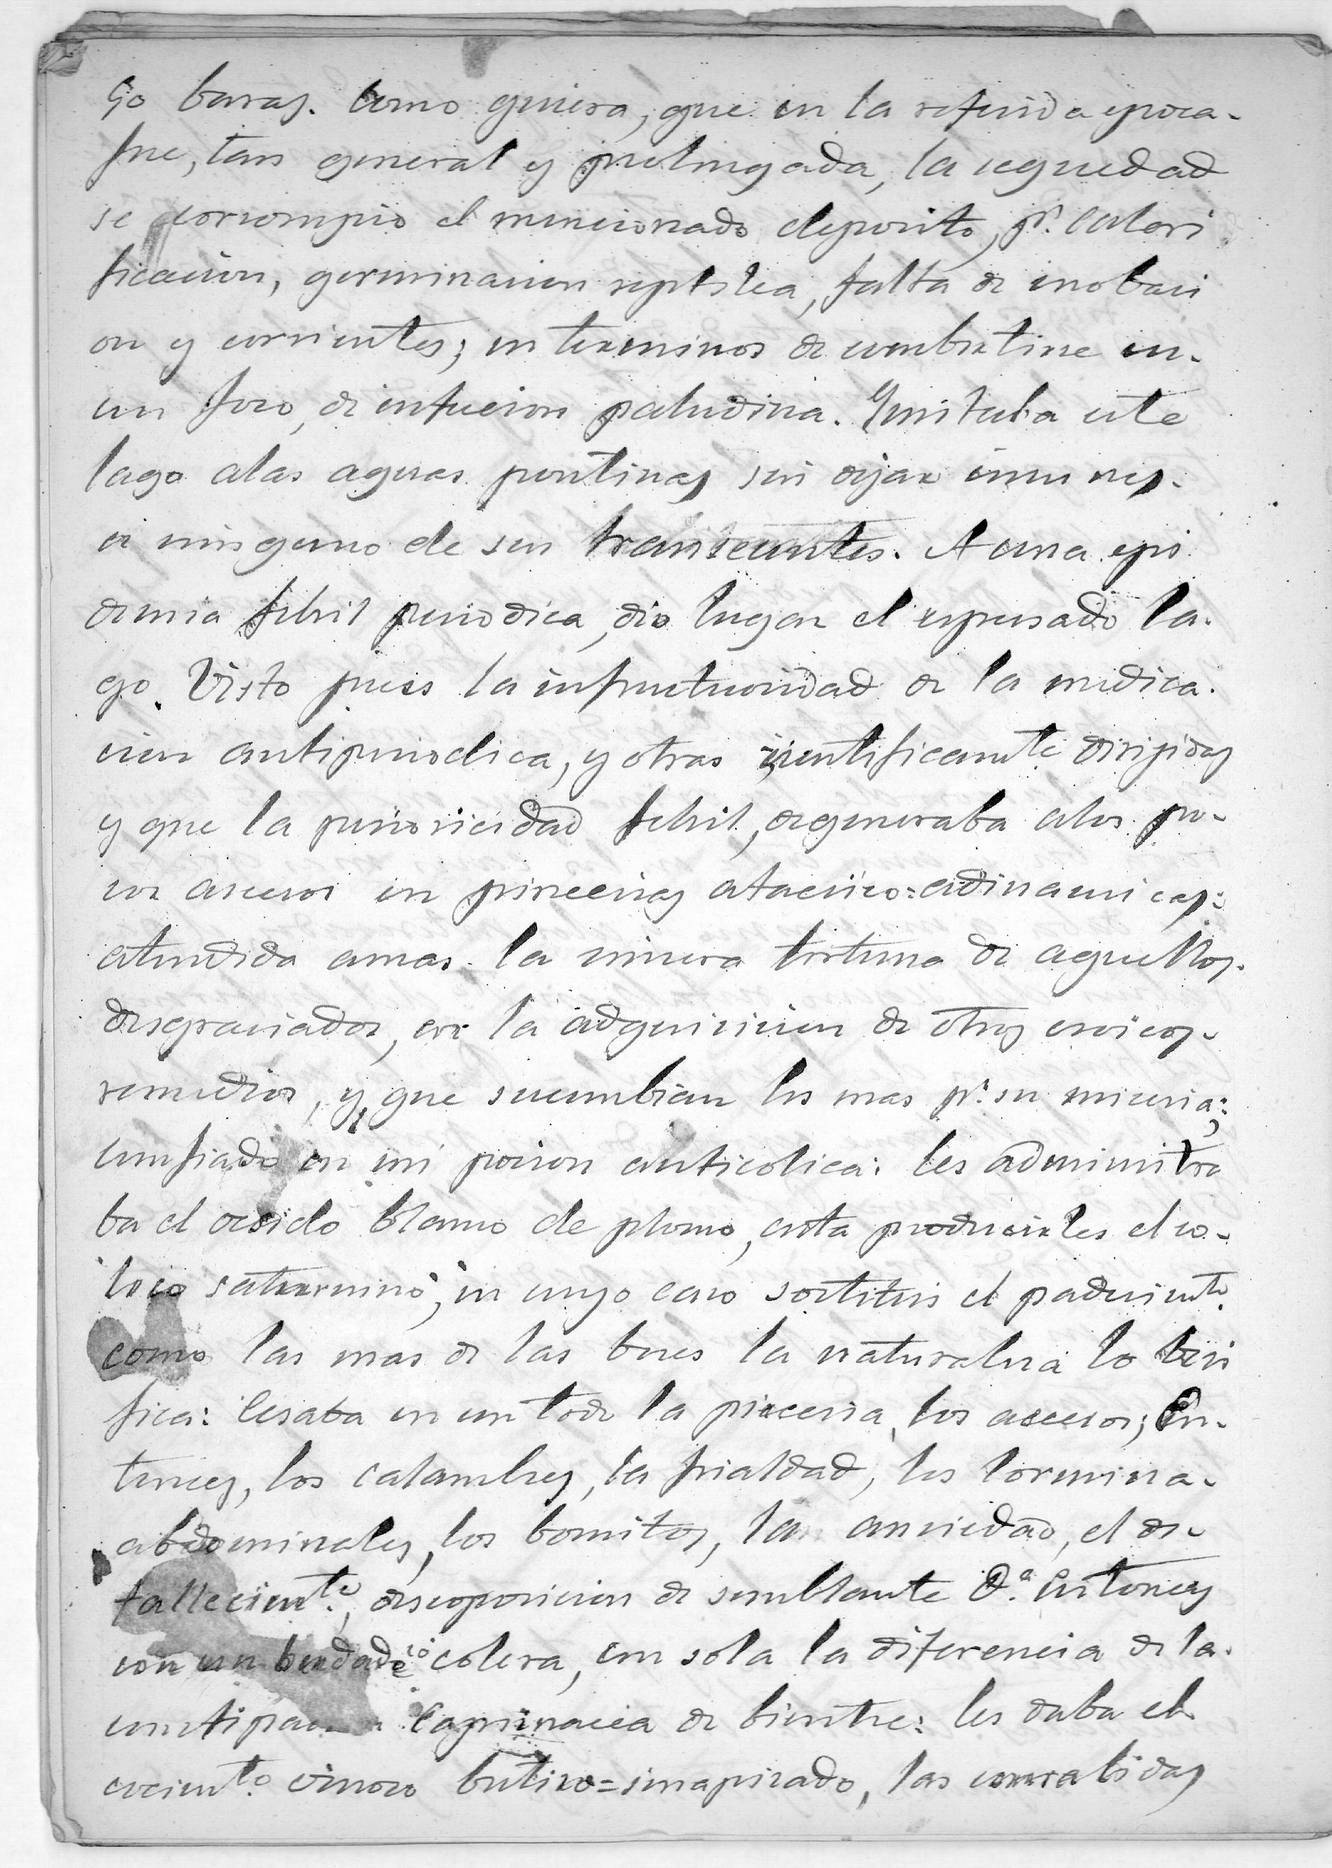 60 baras. Como quiera, que en la referida epoca-
fue, tan general y prolongada, la ceguedad
se corrompio el mencionado deposito, pr. calori
ficacion, germinacion reptilea, falta de inobaci
on y corrientes; en terminos de combertirse en-
un foco, de infeccion paludina. Ymitaba este
lago alas aguas pontinas sin dejar inmunes-
a ninguno de sus transeuntes. A una epi
demia febril periodica, dio lugar el espresado la-
go. Visto pues la infructuosidad de la medica-
cion antiperiodica, y otras cientificamte. dirijidas
y que la periodicidad febril, degeneraba alos po-
cos accesos en pirecias atacsico=adinamicas:
atendida amas la misera fortuna de aquellos-
desgraciados, en la adquisicion de otros eroicos-
remedios, y que sucumbian los mas pr. su miseria;
confiado en mi pocion anticolica: les administra
ba el ocsido blanco de plomo, asta producirles el co-
lico saturnino, en cuyo caso sostituis el padecimto.
como las mas de las beces la naturaleza lo beri
fica: Cesaba en un todo la pirecsia, los accesos; En-
tonces, los calambres, la frialdad, los tormina-
abdominales, los bomitos, la ansiedad, el des-
fallecimto., descoposicion de semblante &a. Entonces
con un berdadero colera, con sola la diferencia de la-
constipacion de bientre: les daba el
cocimto. vinoso butiro=sinapisado, las